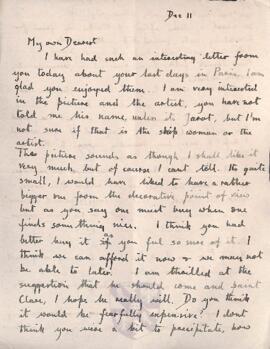 Dec 11
My own Dearest
I have had such an interesting letter from
you today about your last days in Paris. I am
glad you enjoyed them. I am very interested
in the picture and the artist, you have not
told me his name, unless its Jacot, but I'm
not sure if that is the shop woman or the
artist.
The picture sounds as though I shall like it
very much, but of course I can't tell. Its quite
small, I would have liked to have a rather
bigger one from the decorative point of view
but as you say one must buy when one
finds something nice. I think you had
better buy it as you feel so sure of it. I
think we can afford it now & we may not
be able to later. I am thrilled at the
suggestion that he should come and paint
Clare, I hope he really will. Do you think
it would be fearfully expensive? I dont
think you were a bit to precipitate, now